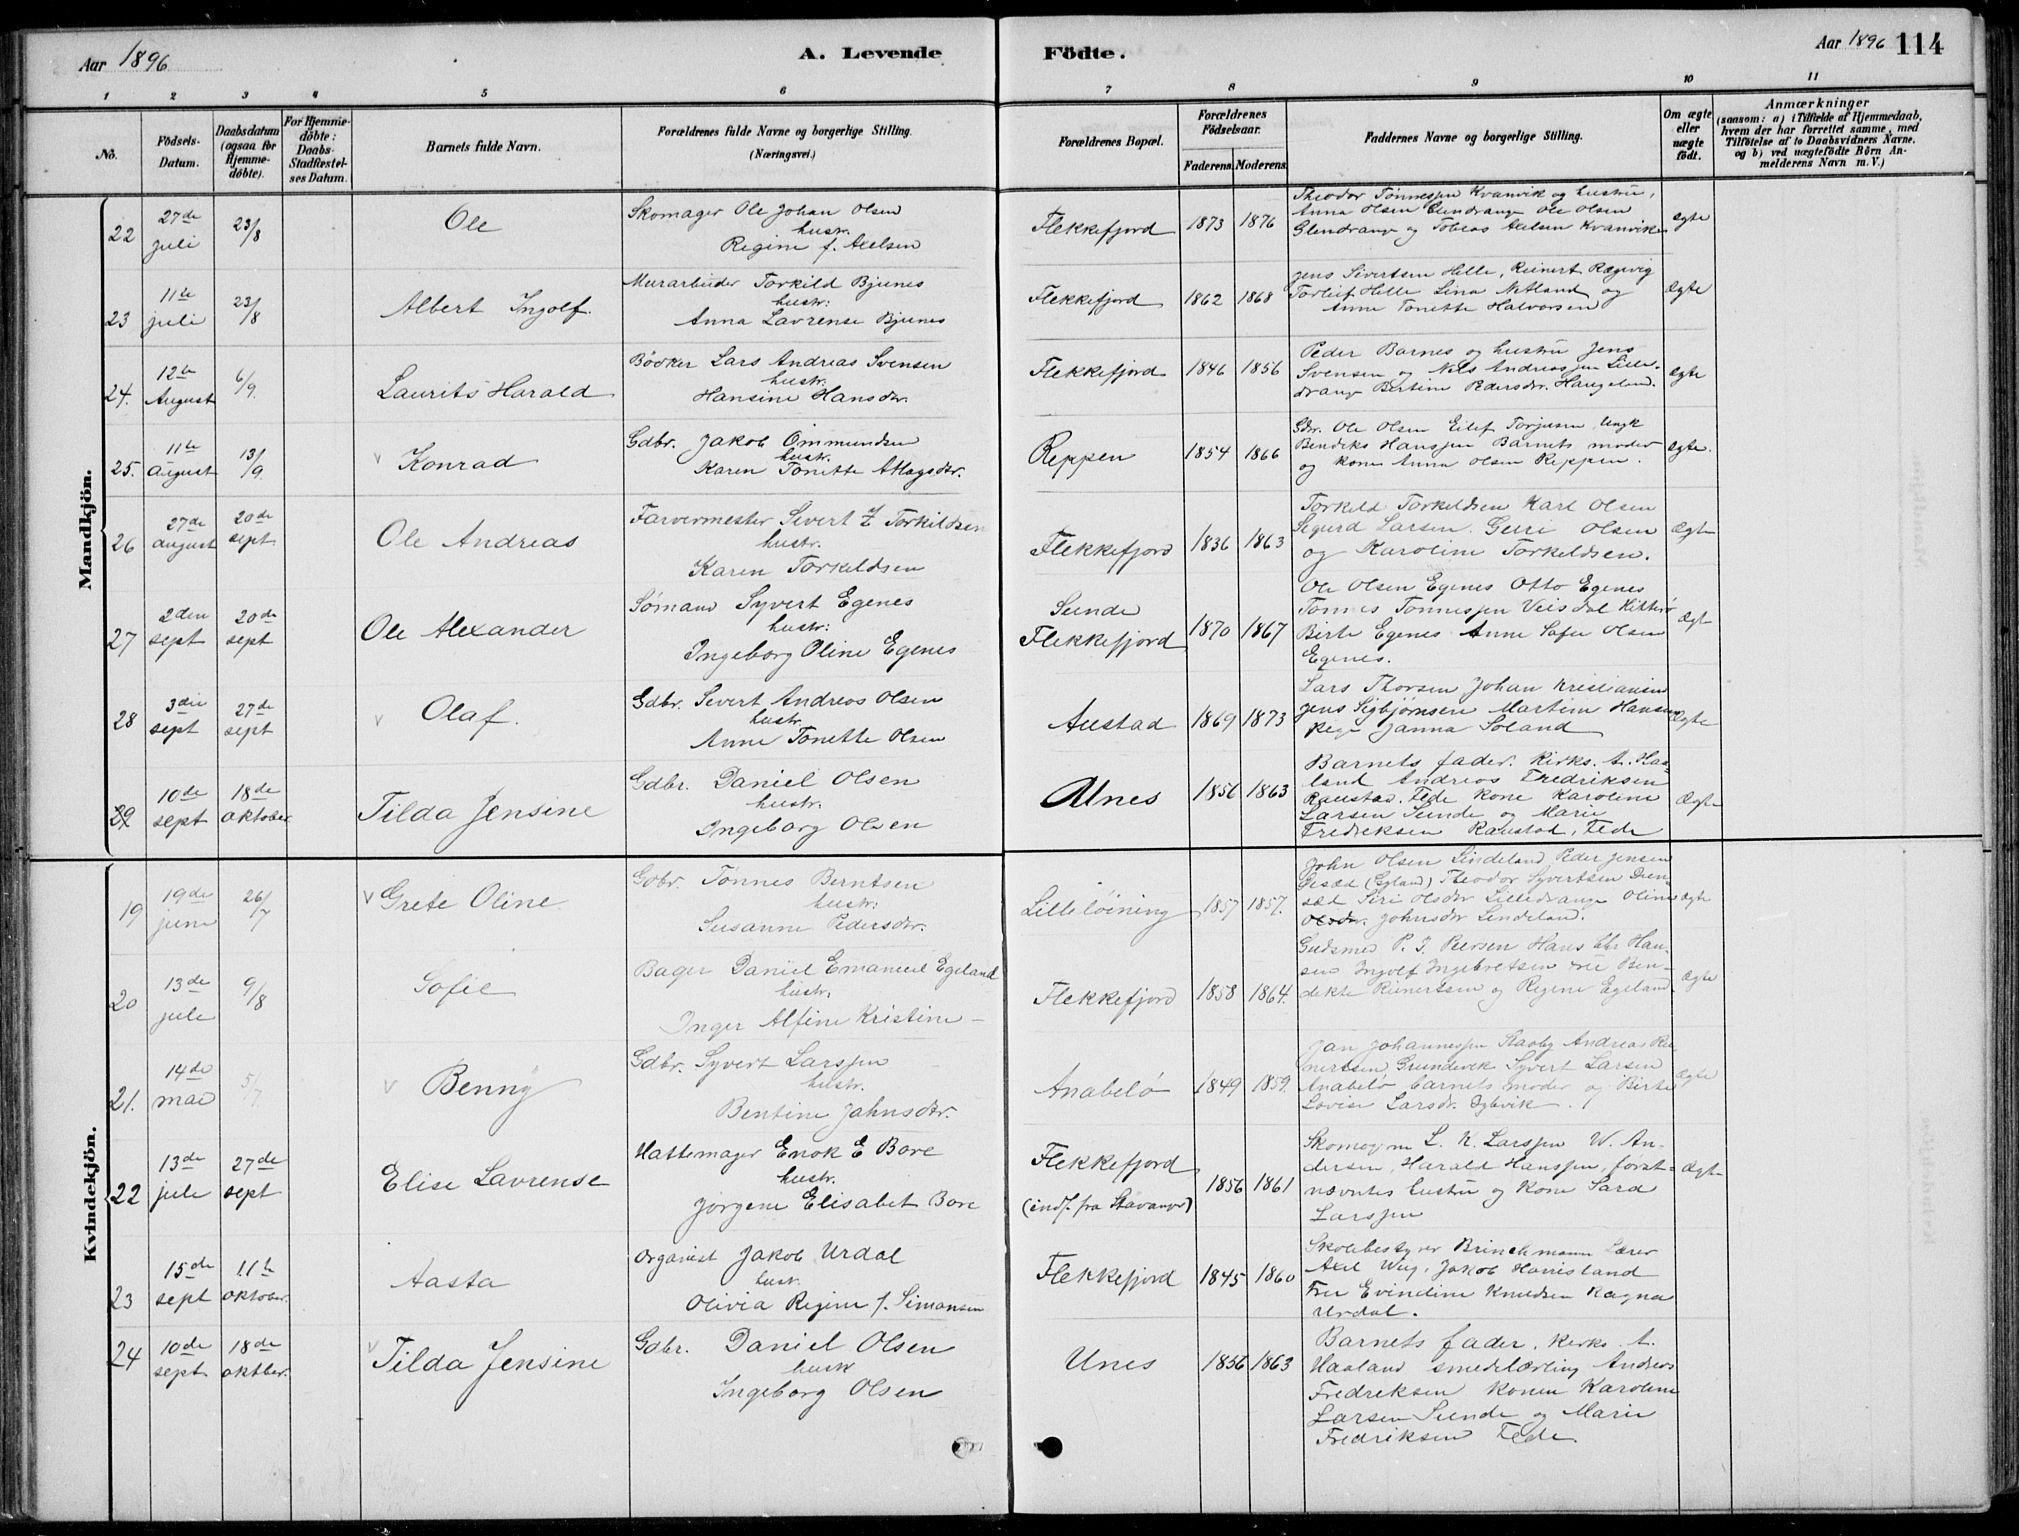 Aar 1896
A. Levende
Födte.
Aar 1896 114
1 2 3 4 5 6 7 8 9 10 11
No.
Födsels-Datum.
Daabsdatum (ogsaa for Hjemme-döbte).
For Hjemme-döbte: Daabs-Stadfæstel-ses Datum.
Barnets fulde Navn.
Forældrenes fulde Navne og borgerlige Stilling.
(Næringsvei.)
Forældrenes Bopæl.
Forældrenes Födselsaar.
Faderens. Moderens.
Faddernes Navne og borgerlige Stilling.
Om ægte eller uægte födt.
Anmærkninger
(saasom: a) i Tilfælde af Hjemmedaab, hvem der har forrettet samme, med Tilföielse af to Daabsvidners Navne, og b) ved uægtefödte Börn An-melderens Navn m. V.)
Mandkjön.
22 27de juli 23/8 Ole
Skomager Ole Johan Olsen
hustr.
Regine f. Axelsen
Flekkefjord 1873 1876
Theodor Tønnessen Kvanvik og hustru,
Anna Olsen Glendrange Ole Olsen
Glendrange og Tobias Axelsen Kvanvik
ægte
23 11te juli 23/8 Albert Ingolf.
Murarbeider Torkild Bjunes
hustr:
Anna Lavrense Bjunes
Flekkefjord 1862 1868
Jens Sivertsen Hille, Reinert Rægevig
Torleif Hille Lina Netland og
Anne Tonette Halvorsen
Ægte
24. 12te August 6/9. Laurits Harald
Bödker Lars Andreas Svensen
hustr:
Hansine Hansdtr.
Flekkefjord 1846 1856
Peder Barnes og hustru Jens
Svensen og Nils Andreassen Lille-
drange Bertine Pedersdtr. Haugeland.
Ægte
25. 11te August 13/9. Konrad
Gdbr. Jakob Ommundsen
hustr.
Karen Tonette Atlagsdtr.
Reppen 1854 1866
Gbr. Ole Olsen Eilef Torjusen, Ungk
Bendiks Hanssen Barnets moder
og kone Anna Olsen Reppen.
ægte.
26 27de august 20de sept Ole Andreas
Farvermester Sivert Z Torkildsen
hustr.
Karen Torkildsen
Flekkefjord 1836 1863
Torkild Torkildsen Karl Olsen
Sigurd Larsen. Guri Olsen
og Karoline Torkeldsen.
Ægte
27 2den sept 20de sept Ole Alexander
Sømand Syvert Egenes
hustr:
Ingeborg Oline Egenes
Sunde
Flekkefjord 1870 1867
Ole Olsen Egenes Otto Egenes
Tønnes Tønnessen Veisdal Hitterø
Birte Egenes Anne Sofie Olsen
Egenes.
Ægt
28 3die sept 27de sept Olaf.
Gdbr. Sivert Andreas Olsen
hustr.
Anne Tonette Olsen
Austad 1869 1873
Lars Thorsen Johan Kristiansen
Jens Sigbjørnsen Martin Hansen
Pige Janna Soland
Ægte
29 10de sept 18de oktober. Tilda Jensine
Gdbr. Daniel Olsen
hustr.
Ingeborg Olsen
Unes 1856 1863
Barnets fader. Kirks. A. Haa-
land Andreas Fredriksen
Raustad. Fede kone Karoline
Larsen Sunde og Marie
Fredriksen Raustad, Fede
Ægte
Kvindekjön.
19 19de juni 26/7 Grete Oline.
Gdbr. Tønnes Berntsen
hustr:
Susanne Pedersdtr.
Lilleløining 1857 1857.
John Olsen Lindeland Peder Jensen
(Gyland) Theodor Syvertsen
Siri Olsdtr Lilledrange Oline
Olsdtr. Johnsdtr Lindeland.
Ægte
20 13de jule 9/8 Sofie
Bager Daniel Emanuel Egeland
hustr.
Inger Alfine Kristine –
Flekkefjord 1858 1864.
Guldsmed P. J. Reersen Hans Chr Han-
sen Ingolf Ingebretsen Fru Ben-
dikte Reinertsen og Regine Egeland
Ægte
21. 14de mai 5/7. Benny
Gdbr. Syvert Larssen
hustr.
Bentine Jahnsdtr.
Anabelø 1849 1859.
Jan Johannessen Staaby Andreas Rei-
nertsen Grundevik Syvert Larsen
Anabelø barnets moder og Birte
Lovise Larsdtr.
Ægte
22 13de jule 27de sept Elise Lavrense
Hattemager Enok E Bore
hustr.
Jørgene Elisabet Bore
Flekkefjord
(indf. fra Stavanger) 1856 1861
Skomagrne L. K. Larssen W. An-
dersen, Harald Hanssen, først-
nævntes hustru og Kone Sara
Larssen
Ægte
23 15de sept 11te oktober. Aasta
Organist Jakob Urdal
hustr.
Olivia Regine f. Simonsen
Flekkefjord 1845 1860
Skolebestyrer Brinchmann Lærer
Axel Wiig, Jakob Haurisland
Fru Evindine Knudsen Ragna
Urdal.
24 10de sept 18de oktber. Tilda Jensine
Gdbr. Daniel Olsen
hustr
Ingeborg Olsen
Unes 1856 1863
Barnets fader, Kirks. A.
Haaland smedelærling Andreas
Fredriksen Konen Karoline
Larsen Sunde og Marie
Fredriksen Fede.